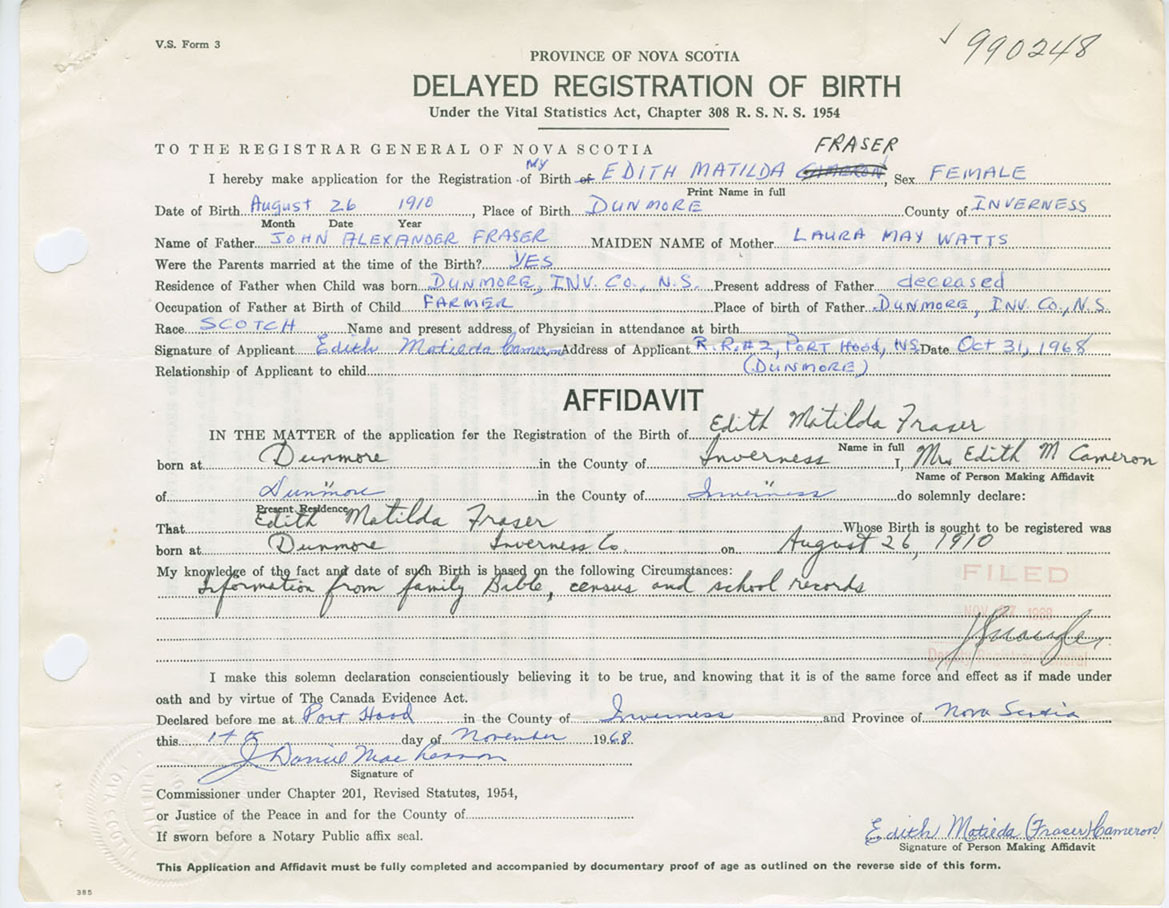 V.S. Form 3
990248
PROVINCE OF NOVA SCOTIA
DELAYED REGISTRATION OF BIRTH
Under the Vital Statistics Act, Chapter 308 R. S. N. S. 1954
TO THE REGISTRAR GENERAL OF NOVA SCOTIA
FRASER
MY
I hereby make application for the Registration of Birth of EDITH MATILDA CAMERON, Sex FEMALE
Print Name in full
Date of Birth August 26 1910, Place of Birth DUNMORE County of INVERNESS
Month Date Year
Name of Father JOHN ALEXANDER FRASER MAIDEN NAME of Mother LAURA MAY WATTS
Were the Parents married at the time of the Birth? YES
Residence of Father when Child was born DUNMORE, INV. CO., N.S. Present address of Father deceased
Occupation of Father at Birth of Child FARMER Place of birth of Father DUNMORE, INV. CO., N.S.
Race SCOTCH Name and present address of Physician in attendance at birth
Signature of Applicant Edith Matilda Cameron Address of Applicant R.R.#2, PORT HOOD, NS Date Oct 31, 1968
Relationship of Applicant to child (DUNMORE)
AFFIDAVIT
IN THE MATTER of the application for the Registration of the Birth of Edith Matilda Fraser
Name in full
born at Dunmore in the County of Inverness I, Mrs Edith M Cameron
Name of Person Making Affidavit
of Dunmore in the County of Inverness do solemnly declare:
Present Residence
That Edith Matilda Fraser Whose Birth is sought to be registered was
born at Dunmore Inverness Co. on August 26, 1910
My knowledge of the fact and date of such Birth is based on the following Circumstances:
Information from family Bible, census and school records
FILED
Deputy Registrar General
I make this solemn declaration conscientiously believing it to be true, and knowing that it is of the same force and effect as if made under
oath and by virtue of The Canada Evidence Act.
Declared before me at Port Hood in the County of Inverness and Province of Nova Scotia
this day of November 1968
J Daniel
Signature of
Commissioner under Chapter 201, Revised Statutes, 1954,
or Justice of the Peace in and for the County of
If sworn before a Notary Public affix seal.
Edith Matilda (Fraser) Cameron
Signature of Person Making Affidavit
This Application and Affidavit must be fully completed and accompanied by documentary proof of age as outlined on the reverse side of this form.
385